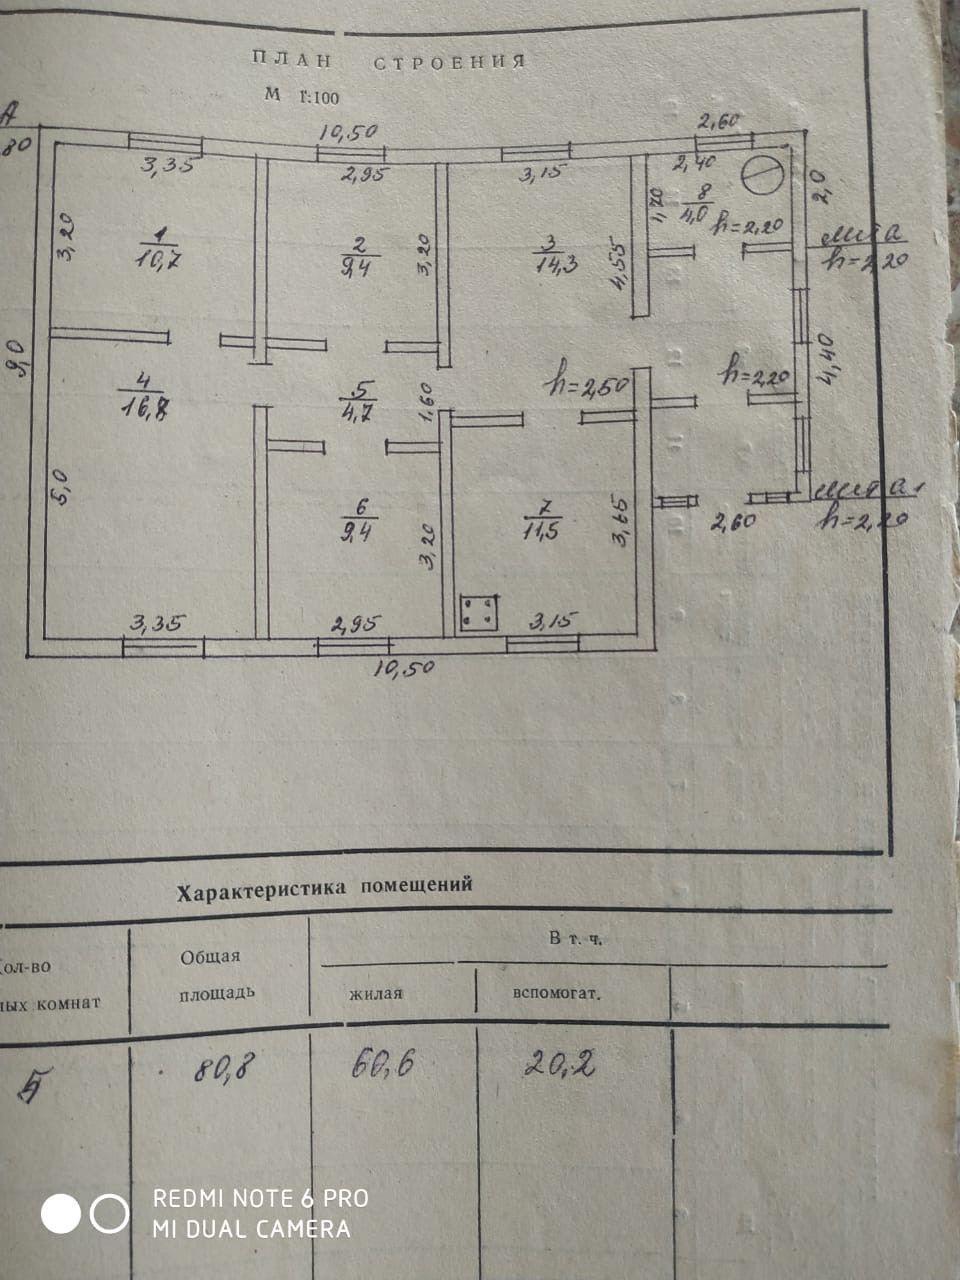 ПЛАН СТРОЕНИЯ
М 1:100
А
80
10,50
2,60
3,35
2,95
3,15
2,40
2,0
3,20
1
10,7
2
9,4
3,20
3
14,3
4,55
1,70
8
4,0
h=2,20
лит а
h=2,20
9,0
4
16,8
5
4,7
1,60
h=2,50
h=2,20
4,40
5,0
6
9,4
3,20
7
11,5
3,65
2,60
лит а1
h=2,20
3,35
2,95
3,15
10,50
Характеристика помещений
ол-во
ых комнат
Общая
площадь
В т. ч.
жилая
вспомогат.
5
80,8
60,6
20,2
REDMI NOTE 6 PRO
MI DUAL CAMERA